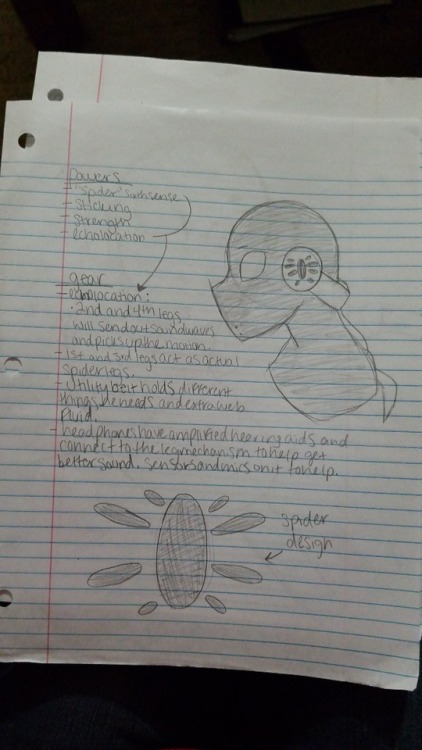 powers
- "spider" sixth sense
- Sticking
- Strength
- echolocation
gear
- echolocation:
• 2nd and 4th legs
will send out soundwaves
and picks up the motion.
- 1st and 3rd legs act as actual
spider legs.
- utility belt holds different
things he needs and extra web
fluid.
- headphones have amplified hearing aids and
connect to the leg mechanism to help get
better sound. sensors and mics on it to help.
spider
design